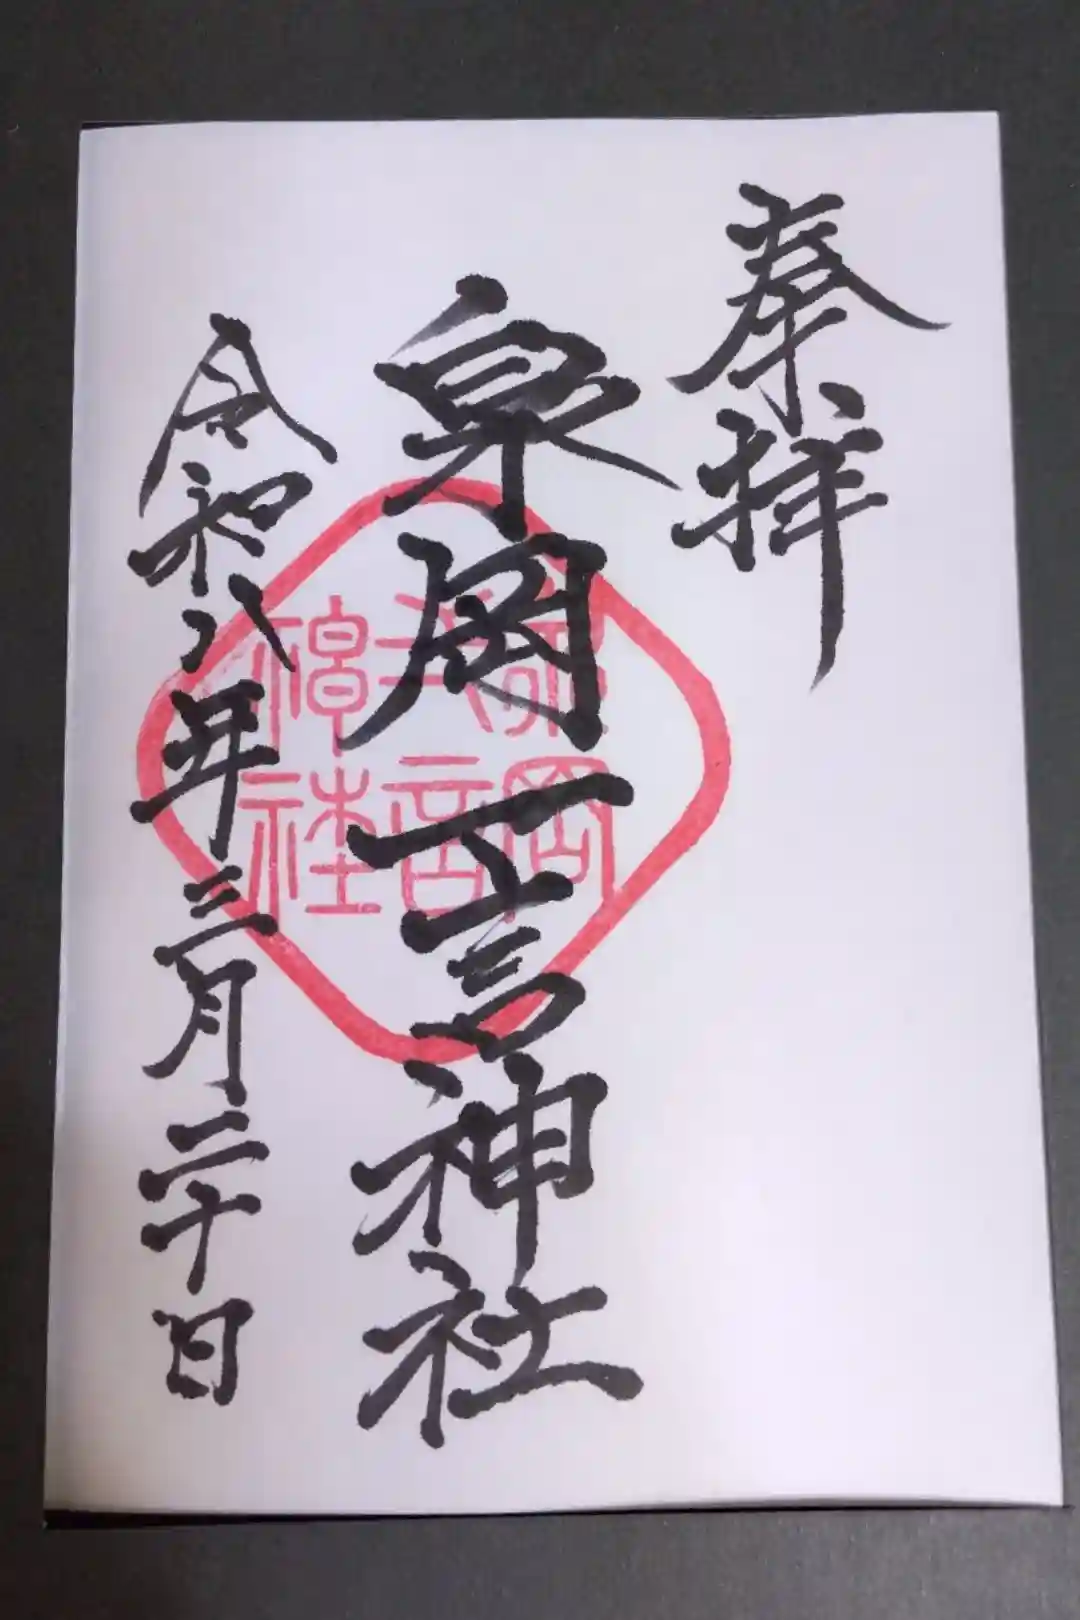 奉拝
泉岡一言神社
令和八年三月二十日
泉岡
言
神社